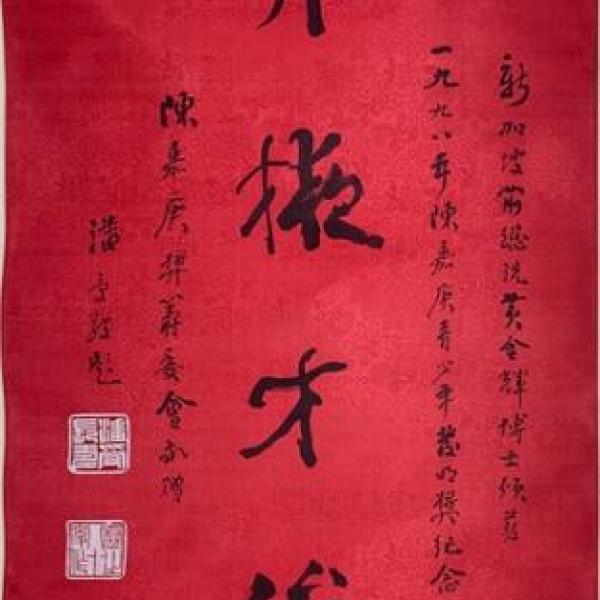 新加坡前總統黃金輝博士頒
一九九八年陳嘉庚青少年發明獎紀念
掖才
陳嘉庚委會敬贈
潘受敬題